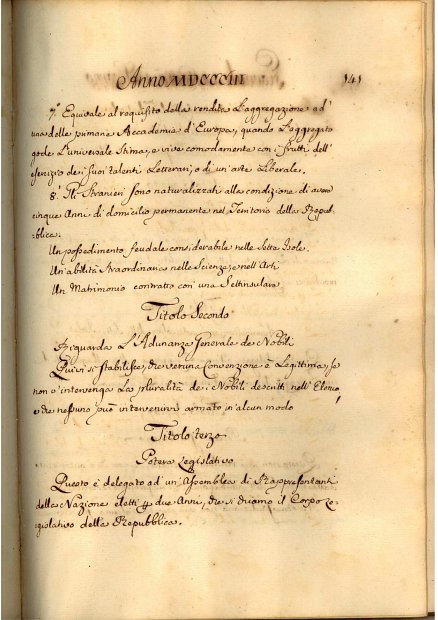 Anno MDCCCIII 141
7.º Equivale al requisito della rendita L'aggregazione ad'
una delle primarie Accademia d'Europa, quando L'aggregato
gode L'universale Stima, e vive comodamente con i frutti dell'
esercizio de i suoi talenti Letterari, o di un'arte Liberale.
8.º Gli Stranieri sono naturalizzati alle condizione di avere
cinque Anni di domicilio permanente nel Territorio della Repub=
blica:
Un possedimento feudale considerabile nelle Sette Isole.
Un'abilità straordinaria nelle Scienze, e nell'Arti
Un Matrimonio contratto con una Settinsulara
Titolo Secondo
Riguarda L'Adunanza Generale de i Nobili
Quivi si stabilisce, che veruna Convenzione è Legittima, se
non v'intervenga La pluralità de i Nobili descritti nell'Elenco,
e che nessuno può intervenirvi armato in alcun modo
Titolo terzo
Potere Legislativo
Questo è delegato ad un'Assemblea di Rappresentanti
della Nazione eletti p. due Anni, che si chiama il Corpo Le=
gislativo della Repubblica.